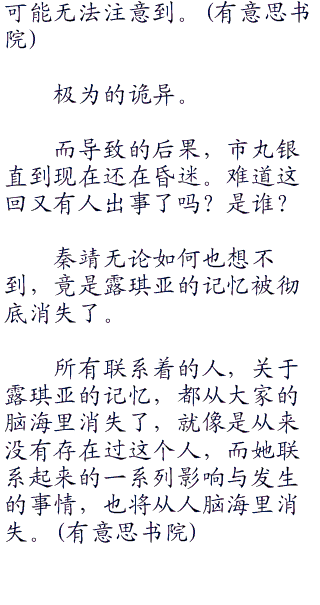 可能无法注意到。(有意思书
院)
极为的诡异。
而导致的后果，市丸银
直到现在还在昏迷。难道这
回又有人出事了吗？是谁？
秦靖无论如何也想不
到，竟是露琪亚的记忆被彻
底消失了。
所有联系着的人，关于
露琪亚的记忆，都从大家的
脑海里消失了，就像是从来
没有存在过这个人，而她联
系起来的一系列影响与发生
的事情，也将从人脑海里消
失。(有意思书院)